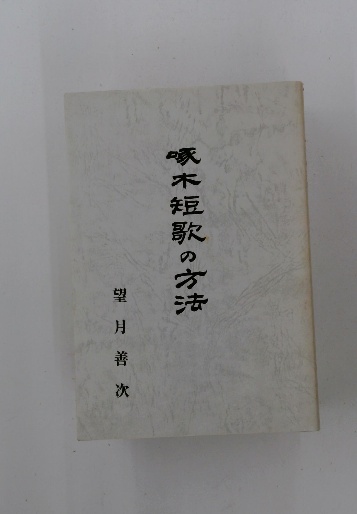 啄木短歌の方法
望月善次